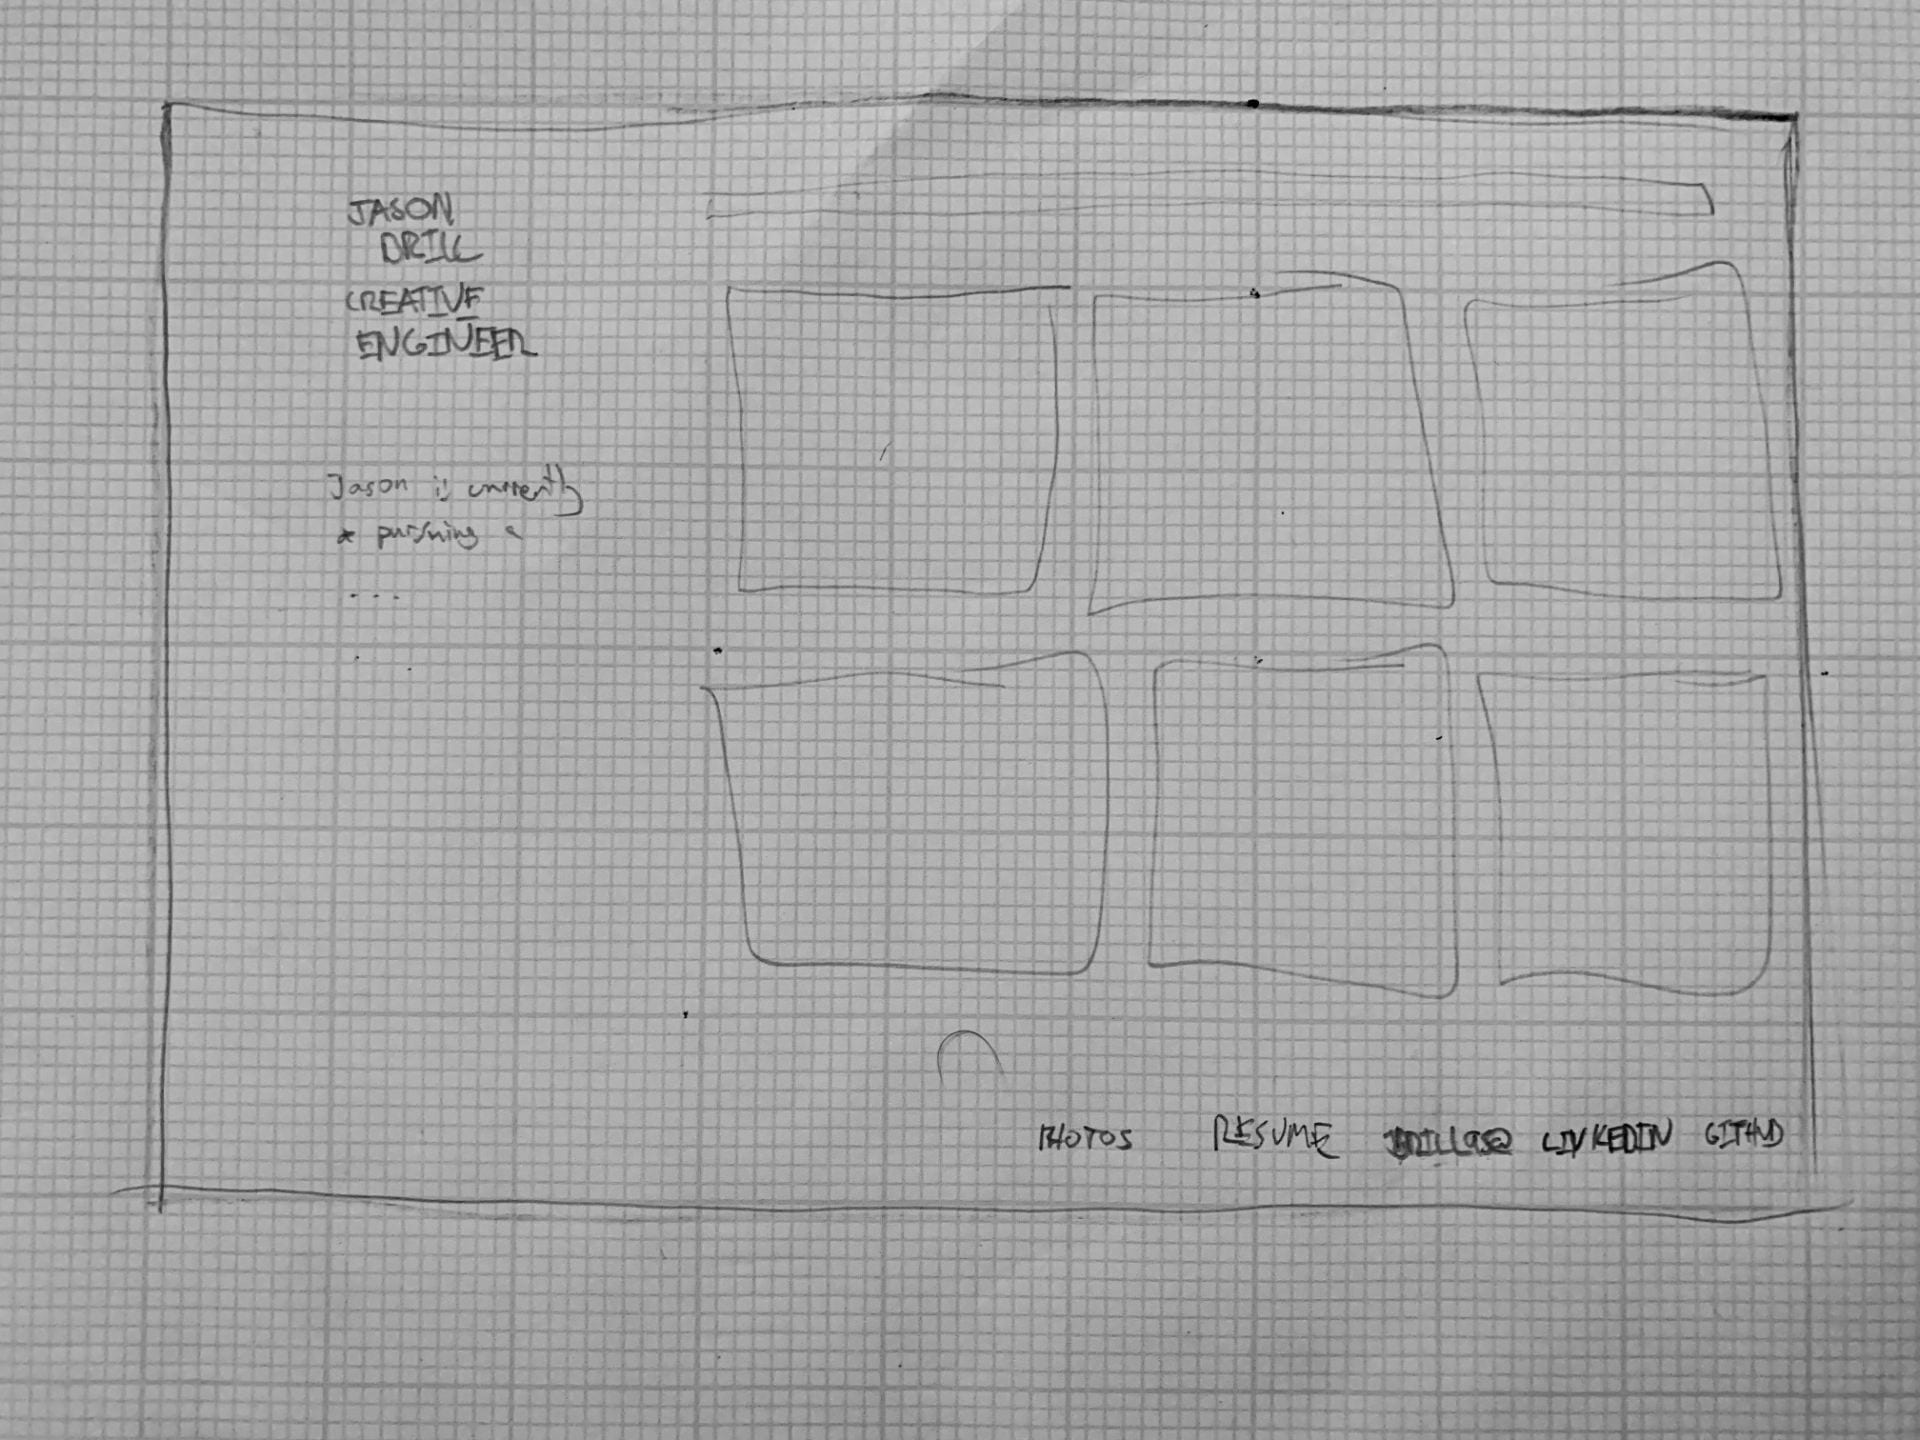 JASON
DRILL
CREATIVE
ENGINEER
Jason is currently
* pursuing a
...
PHOTOS RESUME JDRILL95@ LINKEDIN GITHUB